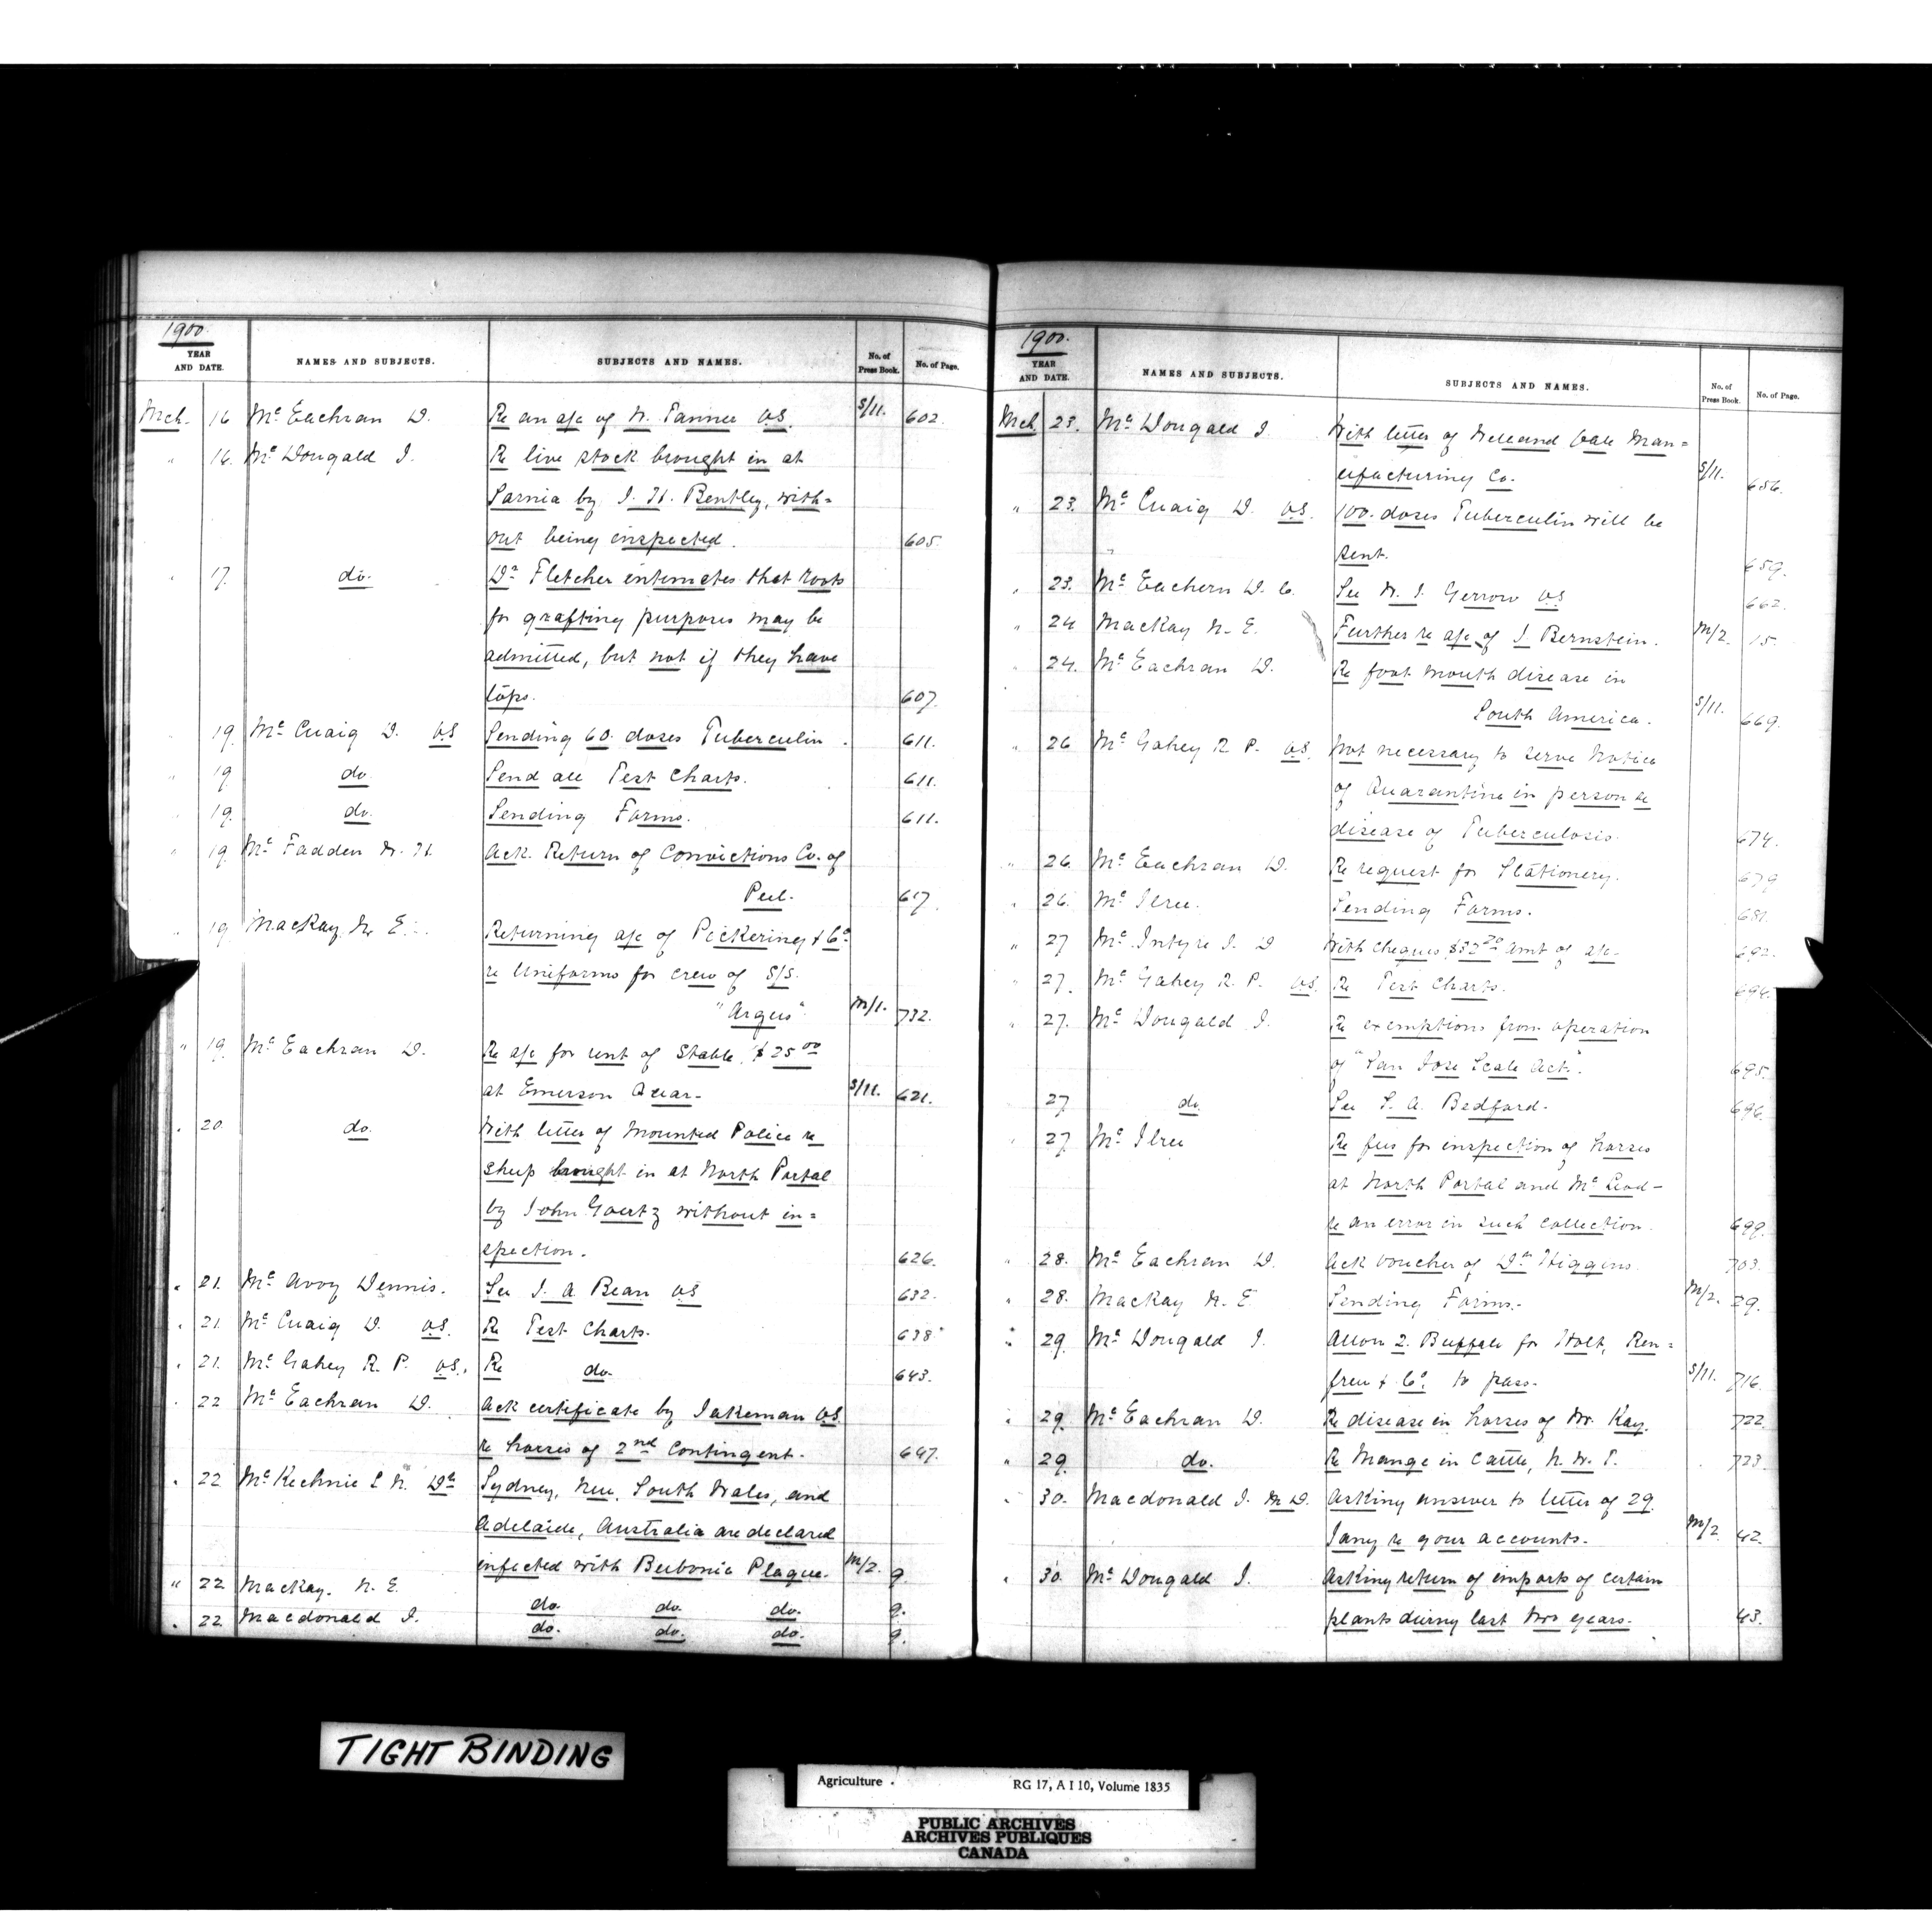 1900.
YEAR AND DATE. NAMES AND SUBJECTS. SUBJECTS AND NAMES. No. of Press Book. No. of Page.
Mch. 16 Mc Eachran D. Re an a/c of W. Tanner V.S. S/11. 602.
" 16. Mc Dougald J. Re live stock brought in at
Sarnia by J. H. Bentley, with=
out being inspected. 605.
" 17. do. Dr Fletcher intimates that roots
for grafting purposes may be
admitted, but not if they have
tops. 607.
" 19. Mc Cuaig D. V.S. Sending 60 doses Tuberculin. 611.
" 19. do. Send all Test Charts. 611.
" 19. do. Sending Forms. 611.
" 19. Mc Fadden W. H. Ack. Return of Convictions Co. of
Peel. 617.
" 19. MacKay N. E. Returning a/c of Pickering & Co.
re Uniforms for crew of S/S.
"Argus" M/1. 732.
" 19. Mc Eachran D. Re a/c for rent of Stable $25 00
at Emerson Quar- S/11. 621.
" 20. do. With letter of Mounted Police re
sheep brought in at North Portal
by John Goertz without in=
spection. 626.
" 21. Mc Avoy Dennis. See J. A. Bean V.S. 632.
" 21. Mc Cuaig D. V.S. Re Test Charts. 638
" 21. Mc Gahey R. P. V.S. Re do. 643.
" 22 Mc Eachran D. Ack certificate by Jakeman V.S.
re horses of 2nd Contingent. 647.
" 22 Mc Kechnie L. N. Dr Sydney, New South Wales, and
Adelaide, Australia are declared
infected with Bubonic Plague. M/2. 9.
" 22 MacKay. N. E. do. do. do. 9.
" 22. Macdonald J. do. do. do. 9.
1900.
YEAR AND DATE. NAMES AND SUBJECTS. SUBJECTS AND NAMES. No. of Press Book. No. of Page.
Mch. 23. Mc Dougald J. With letter of Welland Vale Man=
ufacturing Co. S/11. 656.
" 23. Mc Cuaig D. V.S. 100 doses Tuberculin will be
sent. 659.
" 23. Mc Eachern D. C. See W. J. Gerrow V.S 662.
" 24 MacKay N. E. Further re a/c of J. Bernstein. M/2. 15.
" 24. Mc Eachran D. Re foot mouth disease in
South America. S/11. 669.
" 26 Mc Gahey R. P. V.S. Not necessary to serve Notice
of Quarantine in person re
disease of Tuberculosis. 674.
" 26. Mc Eachran D. Re request for Stationery. 679
" 26. Mc Ilree. Sending Forms. 681.
" 27 Mc Intyre J. D With cheque $32 20 Amt of a/c- 692.
" 27. Mc Gahey R. P. V.S. Re Test Charts. 694.
" 27. Mc Dougald J. Re exemptions from operation
of "San Jose Scale Act". 695.
27 do. See S. A. Bedford. 696.
" 27 Mc Ilree Re fees for inspection of horses
at North Portal and McLeod-
re an error in such collection. 699.
" 28. Mc Eachran D. Ack voucher of Dr Higgins. 703.
" 28. MacKay N. E Sending Forms. M/2. 29.
" 29. Mc Dougald J. Allow 2 Buffalo for Holt, Ren=
frew & Co. to pass. S/11. 716.
" 29. Mc Eachran D. Re disease in horses of Mr. Kay. 722
" 29 do. Re Mange in Cattle, N. W. T. 723.
" 30. Macdonald J. M.D. Asking answer to letter of 29
Jany re your accounts. M/2 42.
" 30. Mc Dougald J. Asking return of imports of certain
plants during last two years. 43.
TIGHT BINDING
Agriculture RG 17, A I 10, Volume 1835
PUBLIC ARCHIVES
ARCHIVES PUBLIQUES
CANADA